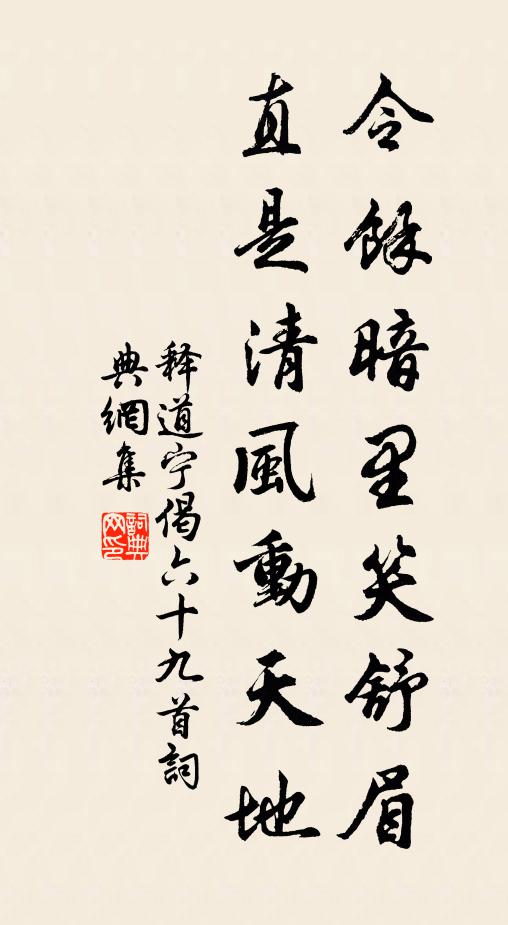 令餘暗里笑舒眉
直是清風動天地
释道宁偈六十九首詞
典網集
詞典
网印